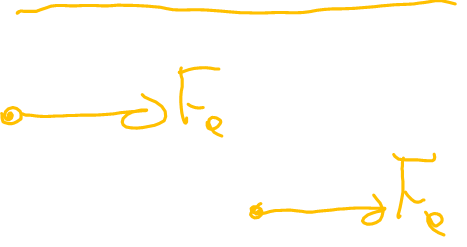 Fe
Fe